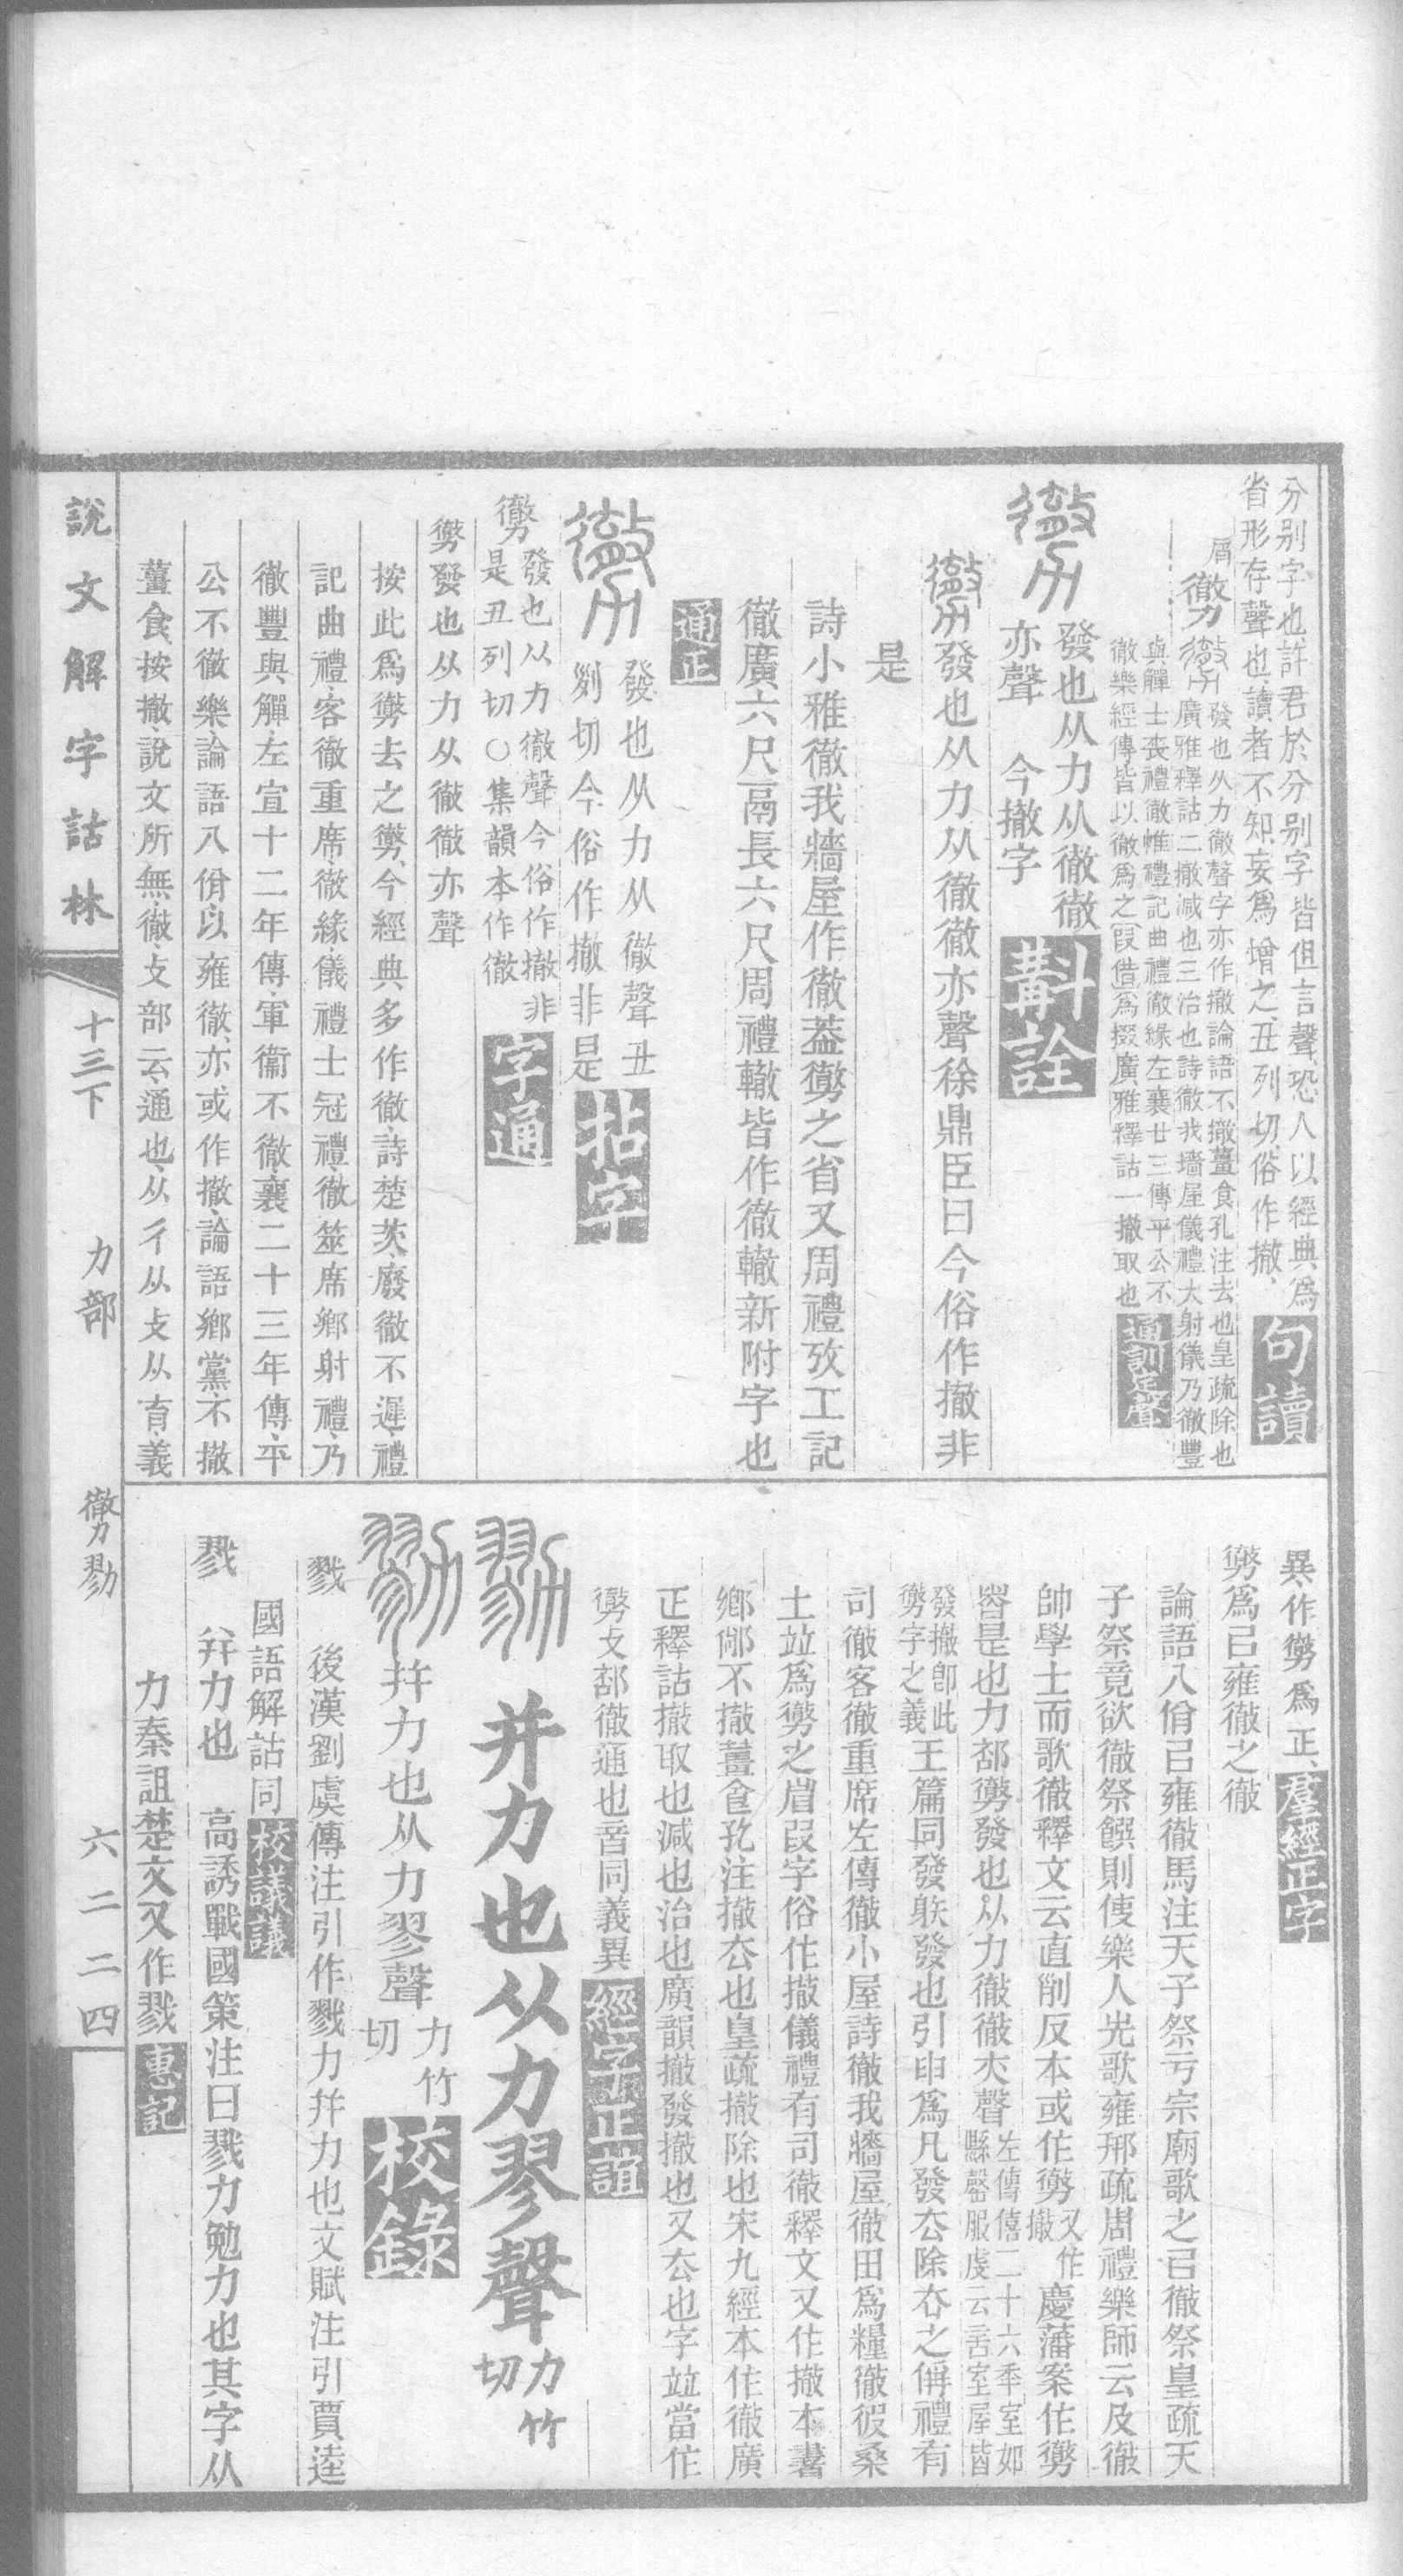 分别字也、許君於分别字皆但言聲、恐人以經典爲
省形存聲也、讀者不知、妄爲增之、丑列切、俗作撤、
句讀
屑 㔃 發也从力徹聲字亦作撤論語不撤薑食孔注去也皇疏除也
廣雅釋詁二撤减也三治也詩徹我墻屋儀禮大射儀乃徹豐
與觶士喪禮徹帷禮記曲禮徹緣左襄廿三傳平公不
徹樂經傳皆以徹爲之〔叚借〕爲掇廣雅釋詁一撤取也
通訓定聲
發也从力从徹徹
亦聲 今撤字
斠詮
發也从力从徹徹亦聲徐鼎臣曰今俗作撤非
是
詩小雅徹我牆屋作徹葢㔃之省又周禮攷工記
徹廣六尺鬲長六尺周禮轍皆作徹轍新附字也
通正
發也从力从徹聲丑
列切今俗作撤非是
拈字
㔃 發也从力徹聲今俗作撤非
是丑列切○集韻本作徹
字通
㔃發也从力从徹徹亦聲
按此爲㔃去之㔃、今經典多作徹、詩楚茨、廢徹不遲、禮
記曲禮、客徹重席、徹緣、儀禮士冠禮、徹筮席、鄉射禮、乃
徹豐與觶、左宣十二年傳、軍衞不徹、襄二十三年傳、平
公不徹樂、論語八佾、以雍徹、亦或作撤、論語鄉黨、不撤
薑食、按撤、說文所無、徹、攴部云、通也、从彳从攴从育、義
異、作㔃爲正、
羣經正字
㔃爲㠯雍徹之徹
論語八佾㠯雍徹馬注天子祭亏宗廟歌之㠯徹祭皇疏天
子祭竟欲徹祭饌則使樂人先歌雍邢疏周禮樂師云及徹
帥學士而歌徹釋文云直削反本或作㔃又作撤慶藩案作㔃
皆是也力部㔃發也从力徹徹亦聲左傳僖二十六年室如
縣罄服虔云言室屋皆
發撤卽此
㔃字之義王篇同發躲發也引申爲凡發厺除厺之偁禮有
司徹客徹重席左傳徹小屋詩徹我牆屋徹田爲糧徹彼桑
土竝爲㔃之省叚字俗作撤儀禮有司徹釋文又作撤本書
鄉鄖不撤薑食孔注撤厺也皇疏撤除也宋九經本作徹廣
正釋詁撤取也減也治也廣韻撤發撤也又厺也字竝當作
㔃攴部徹通也音同義異
經字正誼
勠 并力也从力翏聲 力竹切
并力也从力翏聲 力竹切
校錄
戮 後漢劉虞傳注引作戮力并力也文賦注引賈逵
國語解詁同
校議議
戮 幷力也 高誘戰國策注曰戮力勉力也其字从
力秦詛楚文又作戮
惠記
說文解字詁林 十三下 力部 㔃勠 六二二四